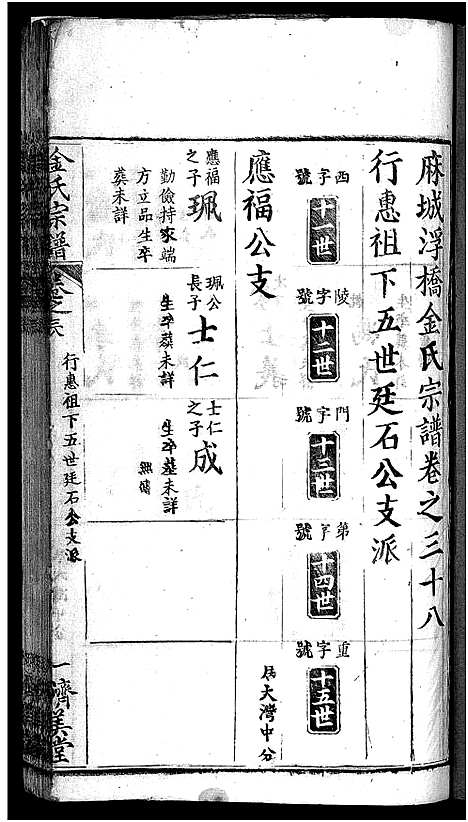 麻城浮橋金氏宗譜卷之三十八
行惠祖下五世廷石公支派
西字號
十一世
陵字號
十二世
門字號
十三世
第字號
十四世
重字號
十五世
應福公支
居大灣中分
應福之子
珮
勤儉持家端
方立品生卒
葬未詳
珮公長子
士仁
生卒葬未詳
士仁之子
成
生卒墓未詳
無傳
金氏宗譜
行惠祖下五世廷石公支派
一
濟美堂